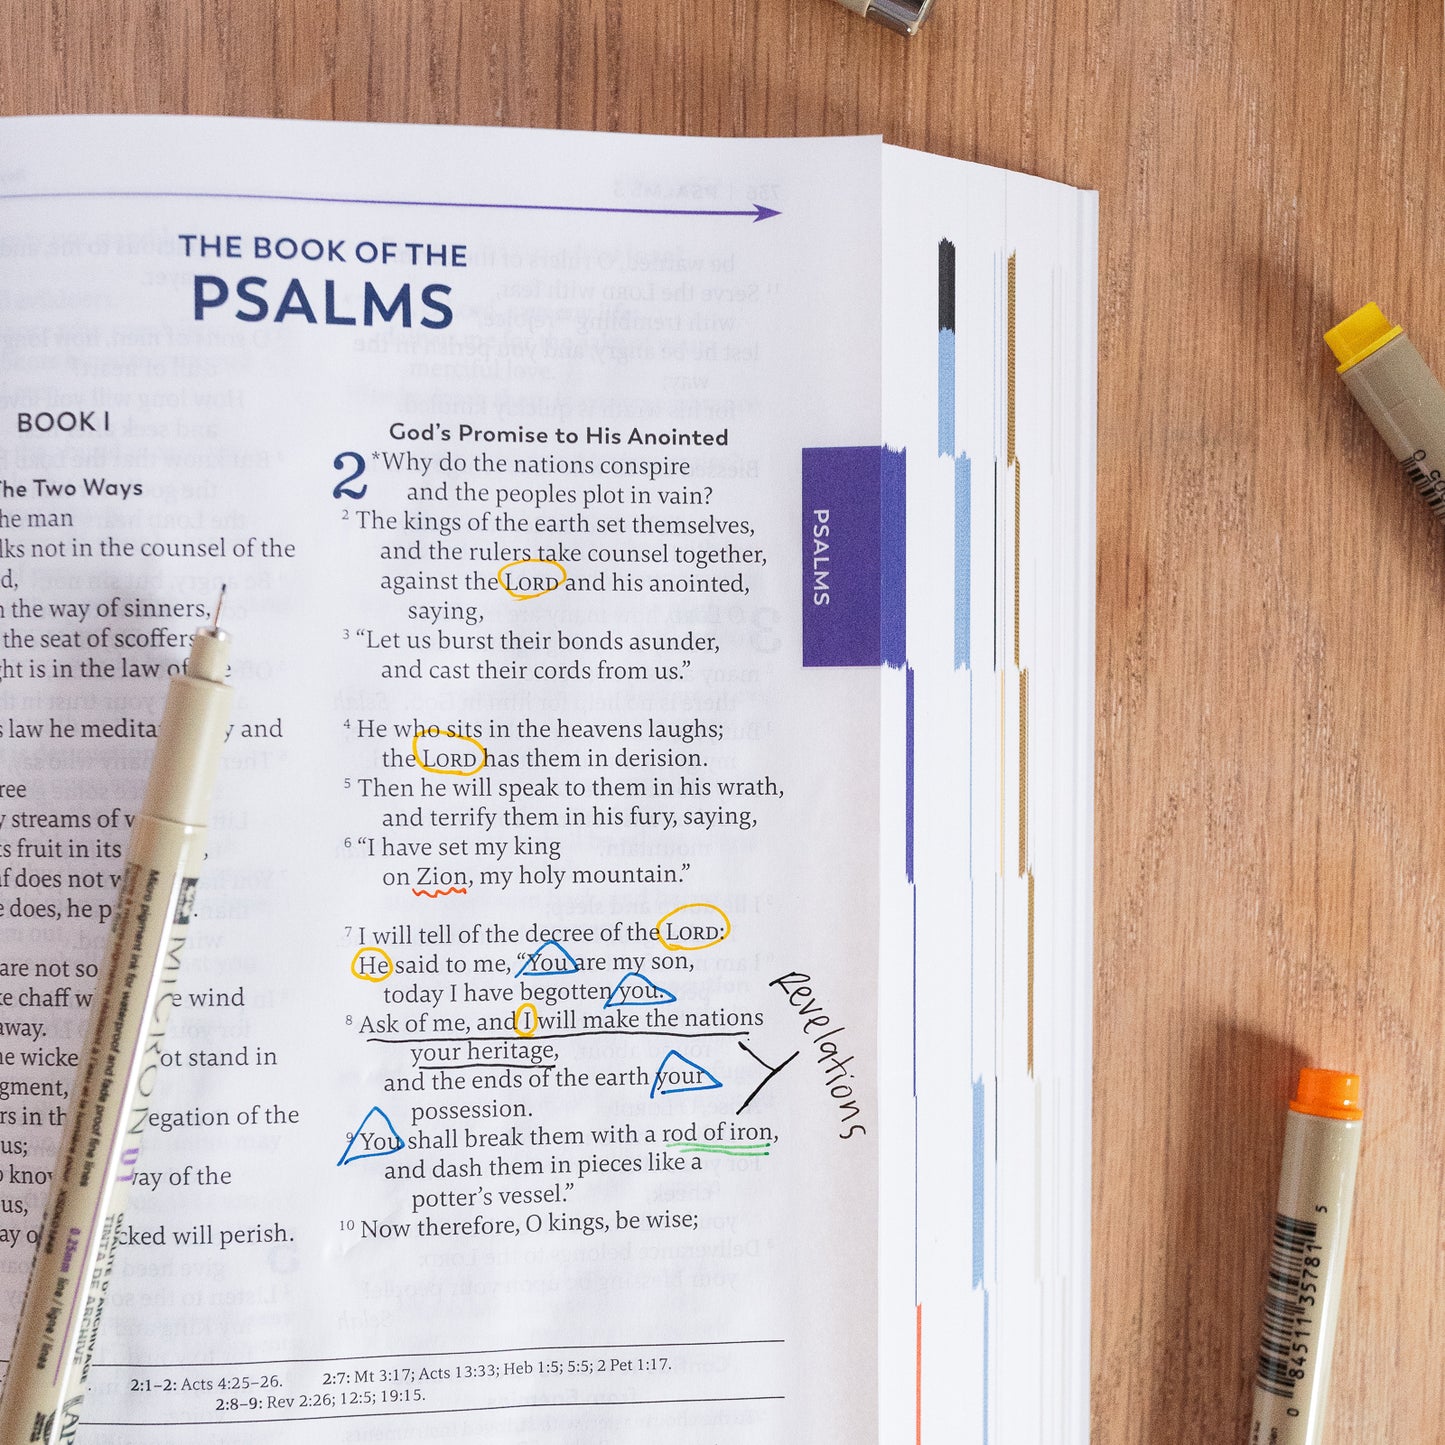 THE BOOK OF THE
PSALMS
BOOK I
The Two Ways
he man
lks not in the counsel of the
d,
n the way of sinners,
the seat of scoffers
ght is in the law of
s law he medita y and
ree
y streams of
ts fruit in its ,
af does not
e does, he p .
are not so
ke chaff w e wind
away.
he wicke ot stand in
gment,
rs in th egation of the
us;
o know way of the
us,
ay o cked will perish.
God's Promise to His Anointed
2 *Why do the nations conspire
and the peoples plot in vain?
2 The kings of the earth set themselves,
and the rulers take counsel together,
against the LORD and his anointed,
saying,
3 “Let us burst their bonds asunder,
and cast their cords from us.”
4 He who sits in the heavens laughs;
the LORD has them in derision.
5 Then he will speak to them in his wrath,
and terrify them in his fury, saying,
6 “I have set my king
on Zion, my holy mountain.”
7 I will tell of the decree of the LORD:
He said to me, “You are my son,
today I have begotten you.
8 Ask of me, and I will make the nations
your heritage,
and the ends of the earth your
possession.
9 You shall break them with a rod of iron,
and dash them in pieces like a
potter's vessel.”
10 Now therefore, O kings, be wise;
Revelations
PSALMS
2:1–2: Acts 4:25–26. 2:7: Mt 3:17; Acts 13:33; Heb 1:5; 5:5; 2 Pet 1:17.
2:8–9: Rev 2:26; 12:5; 19:15.
MICRON 01
Micro pigment ink for waterproof and fade proof fine lines
0.25mm line / ligne / línea
TINTA DE ARCHIVE
0 84511 35781 5